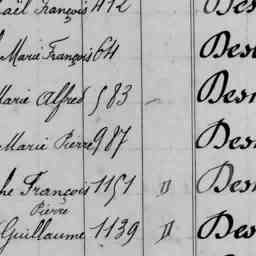 aël François 412 Des
Marie François 64 Des
Marie Alfred 583 Des
Marie Pierre 987 Des
he François 1151 " Des
Pierre
Guillaume 1139 " Des